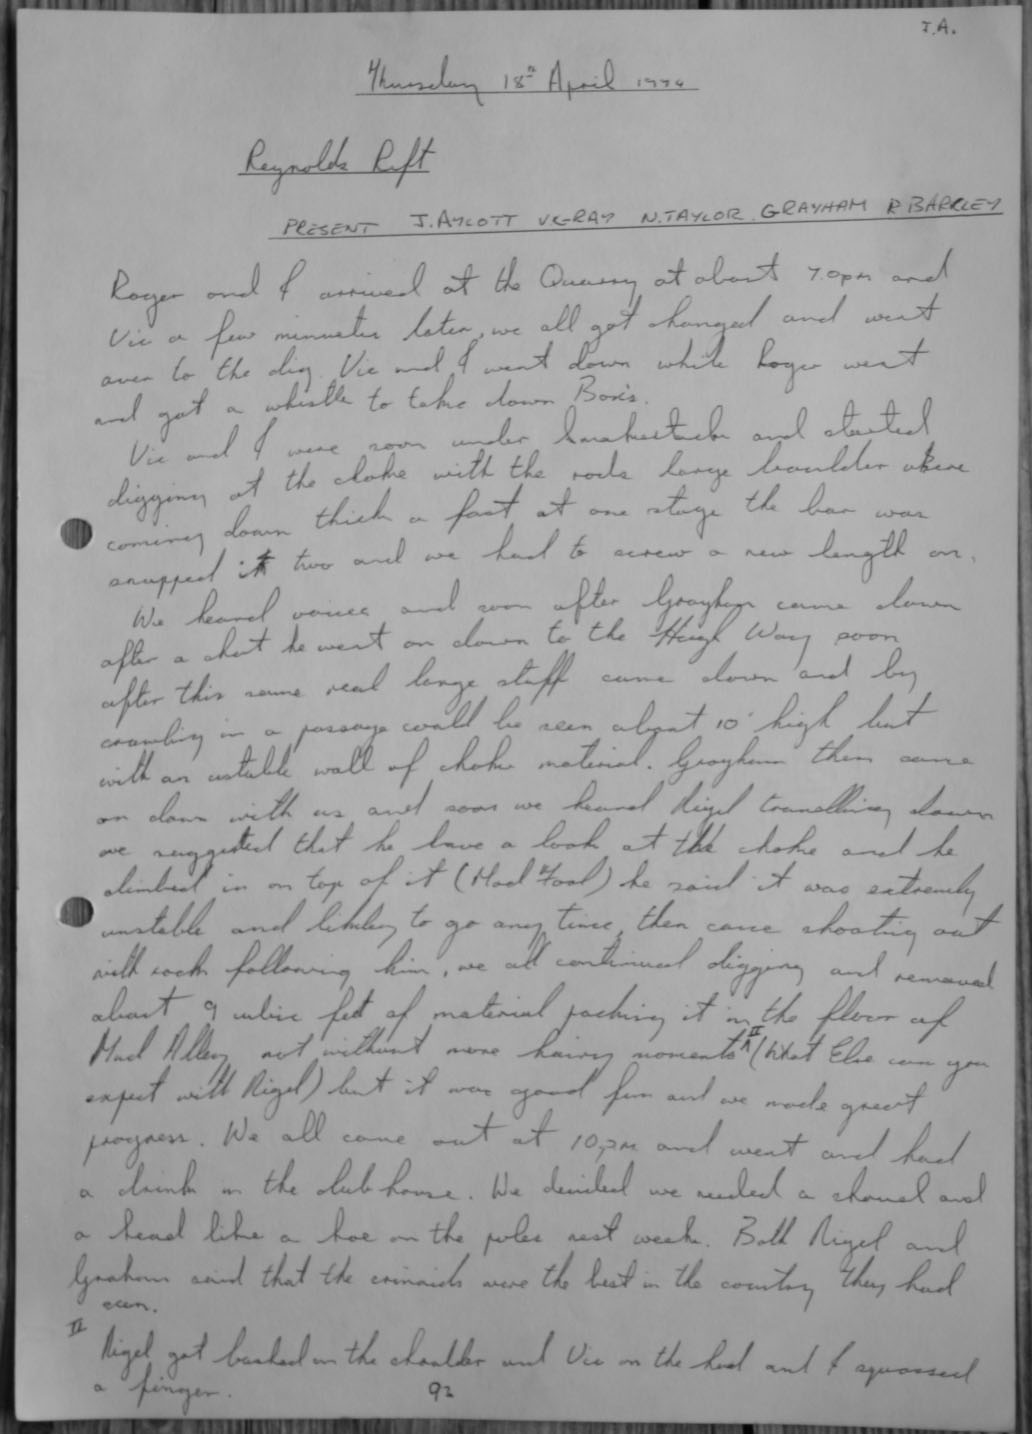 J.A.
Thursday 18th April 1974
Reynolds Rift
PRESENT J. AYLOTT V. GRAY N. TAYLOR. GRAYHAM R BARKLEY
Roger and I arrived at the Quarry at about 7.0pm and
Vic a few minutes later, we all got changed and went
over to the dig. Vic and I went down while Roger went
and got a whistle to take down Boris.
Vic and I were soon under and started
digging at the choke with the rods large boulder were
coming down thick a fast at one stage the bar was
snapped it two and we had to screw a new length on.
We heard voices and soon after Grayham came down
after a chat he went on down to the Hugh Way soon
after this some real large stuff came down and by
crawling in a passage could be seen about 10' high but
with an ustable wall of choke material. Grayham then came
on down with us and soon we heard Nigel down
we suggested that he have a look at the choke and he
climbed in on top of it (Mad Fool) he said it was extremely
unstable and likley to go any time, then came shooting out
with rock following him, we all continued digging and removed
about 9 cubic feet of material packing it in the floor of
Mud Alley not without more hairy moments II (What Else can you
expect with Nigel) but it was good fun and we made great
progress. We all came out at 10pm and went and had
a drink in the club house. We decided we needed a shovel and
a head like a hoe on the poles next week. Both Nigel and
Graham said that the crinoids were the best in the country they had
seen.
II Nigel got bashed on the shoulder and Vic on the head and I squassed
a finger.
92